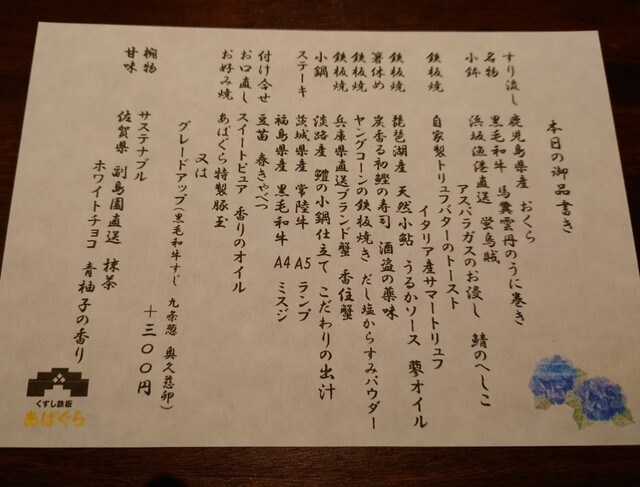 本日の御品書き
すり流し 鹿児島県産 おくら
名物 黒毛和牛 馬糞雲丹のうに巻き
小鉢 浜坂漁港直送 蛍烏賊
アスパラガスのお浸し 鯖のへしこ
鉄板焼 自家製トリュフバターのトースト
イタリア産サマートリュフ
鉄板焼 琵琶湖産 天然小鮎 うるかソース 蓼オイル
箸休め 炭香る初鰹の寿司 酒盗の薬味
鉄板焼 ヤングコーンの鉄板焼き だし塩からすみパウダー
鉄板焼 兵庫県直送ブランド蟹 香住蟹
小鍋 淡路産 鱧の小鍋仕立て こだわりの出汁
ステーキ 茨城県産 常陸牛 A5 ランプ
福島県産 黒毛和牛 A4 ミスジ
付け合せ 豆苗 春きゃべつ
お口直し スイートピュア 香りのオイル
お好み焼 あばぐら特製豚玉
又は
グレードアップ(黒毛和牛すじ 九条葱 奥久慈卵)
+三〇〇円
椀物 サステナブル
甘味 佐賀県 副島園直送 抹茶
ホワイトチョコ 青柚子の香り
くずし鉄板
あばぐら